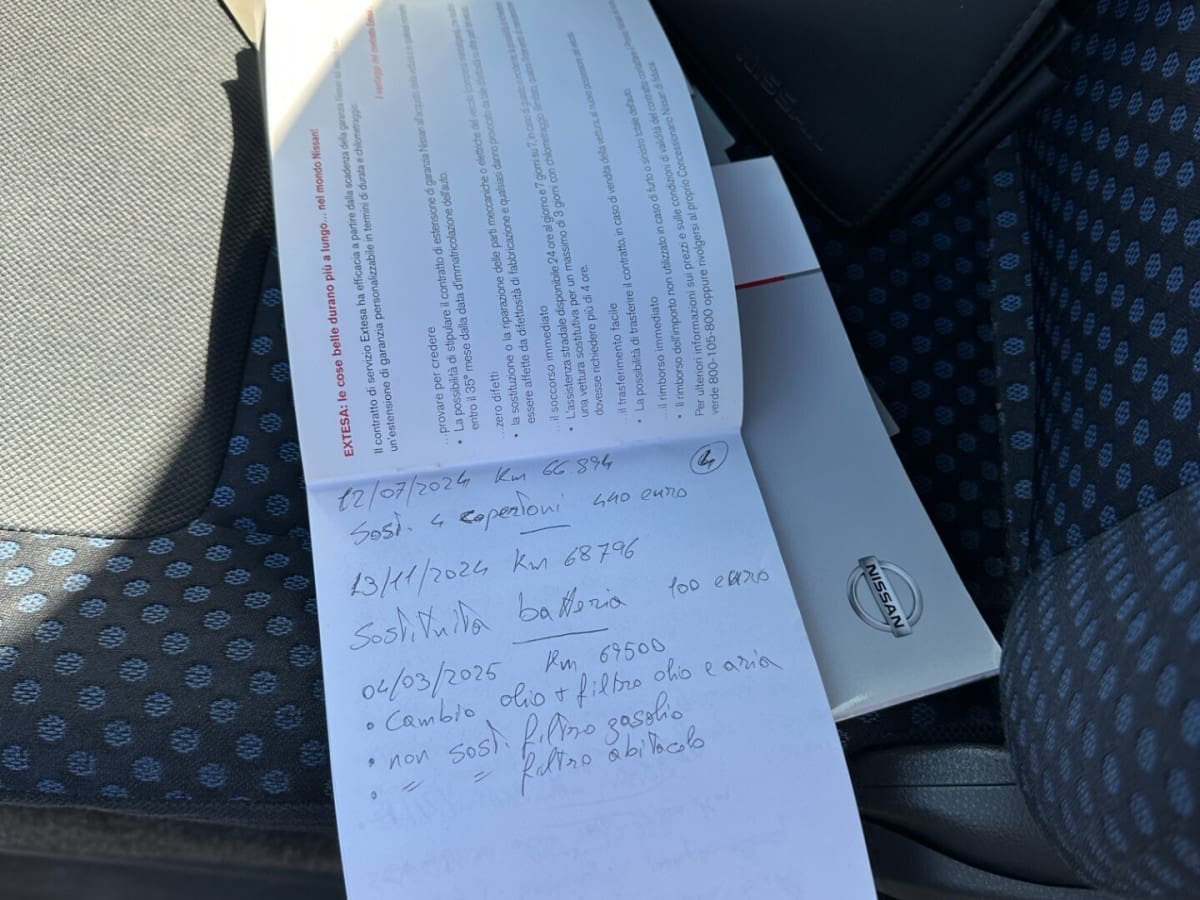 EXTESA: le cose belle durano più a lungo... nel mondo Nissan!
Il contratto di servizio Extesa ha efficacia a partire dalla scadenza della garanzia
un'estensione di garanzia personalizzabile in termini di durata e chilometraggio
I vantaggi del
...provare per credere
• La possibilità di stipulare il contratto di estensione di garanzia Nissan
entro il 35° mese dalla data d'immatricolazione dell'auto.
...zero difetti
• la sostituzione o la riparazione delle parti meccaniche o elettriche del
essere affette da difettosità di fabbricazione e qualsiasi danno provocato da
...il soccorso immediato
• L'assistenza stradale disponibile 24 ore al giorno e 7 giorni su 7, in caso di
una vettura sostitutiva per un massimo di 3 giorni con chilometraggio illimitato
dovesse richiedere più di 4 ore.
...il trasferimento facile
• La possibilità di trasferire il contratto, in caso di vendita della vettura, al
...il rimborso immediato
• Il rimborso dell'importo non utilizzato in caso di furto o sinistro totale dell'auto
Per ulteriori informazioni sui prezzi e sulle condizioni di validità del contratto
verde 800-105-800 oppure rivolgersi al proprio Concessionario Nissan di fiducia.
12/07/2024 Km 66 894
4
Sost. 4 copertoni 440 euro
13/11/2024 Km 68796
Sostituita batteria 100 euro
04/03/2025 Km 69500
• Cambio olio + filtro olio e aria
• non sost. filtro gasolio
• " " filtro abitacolo
NISSAN
NISSAN